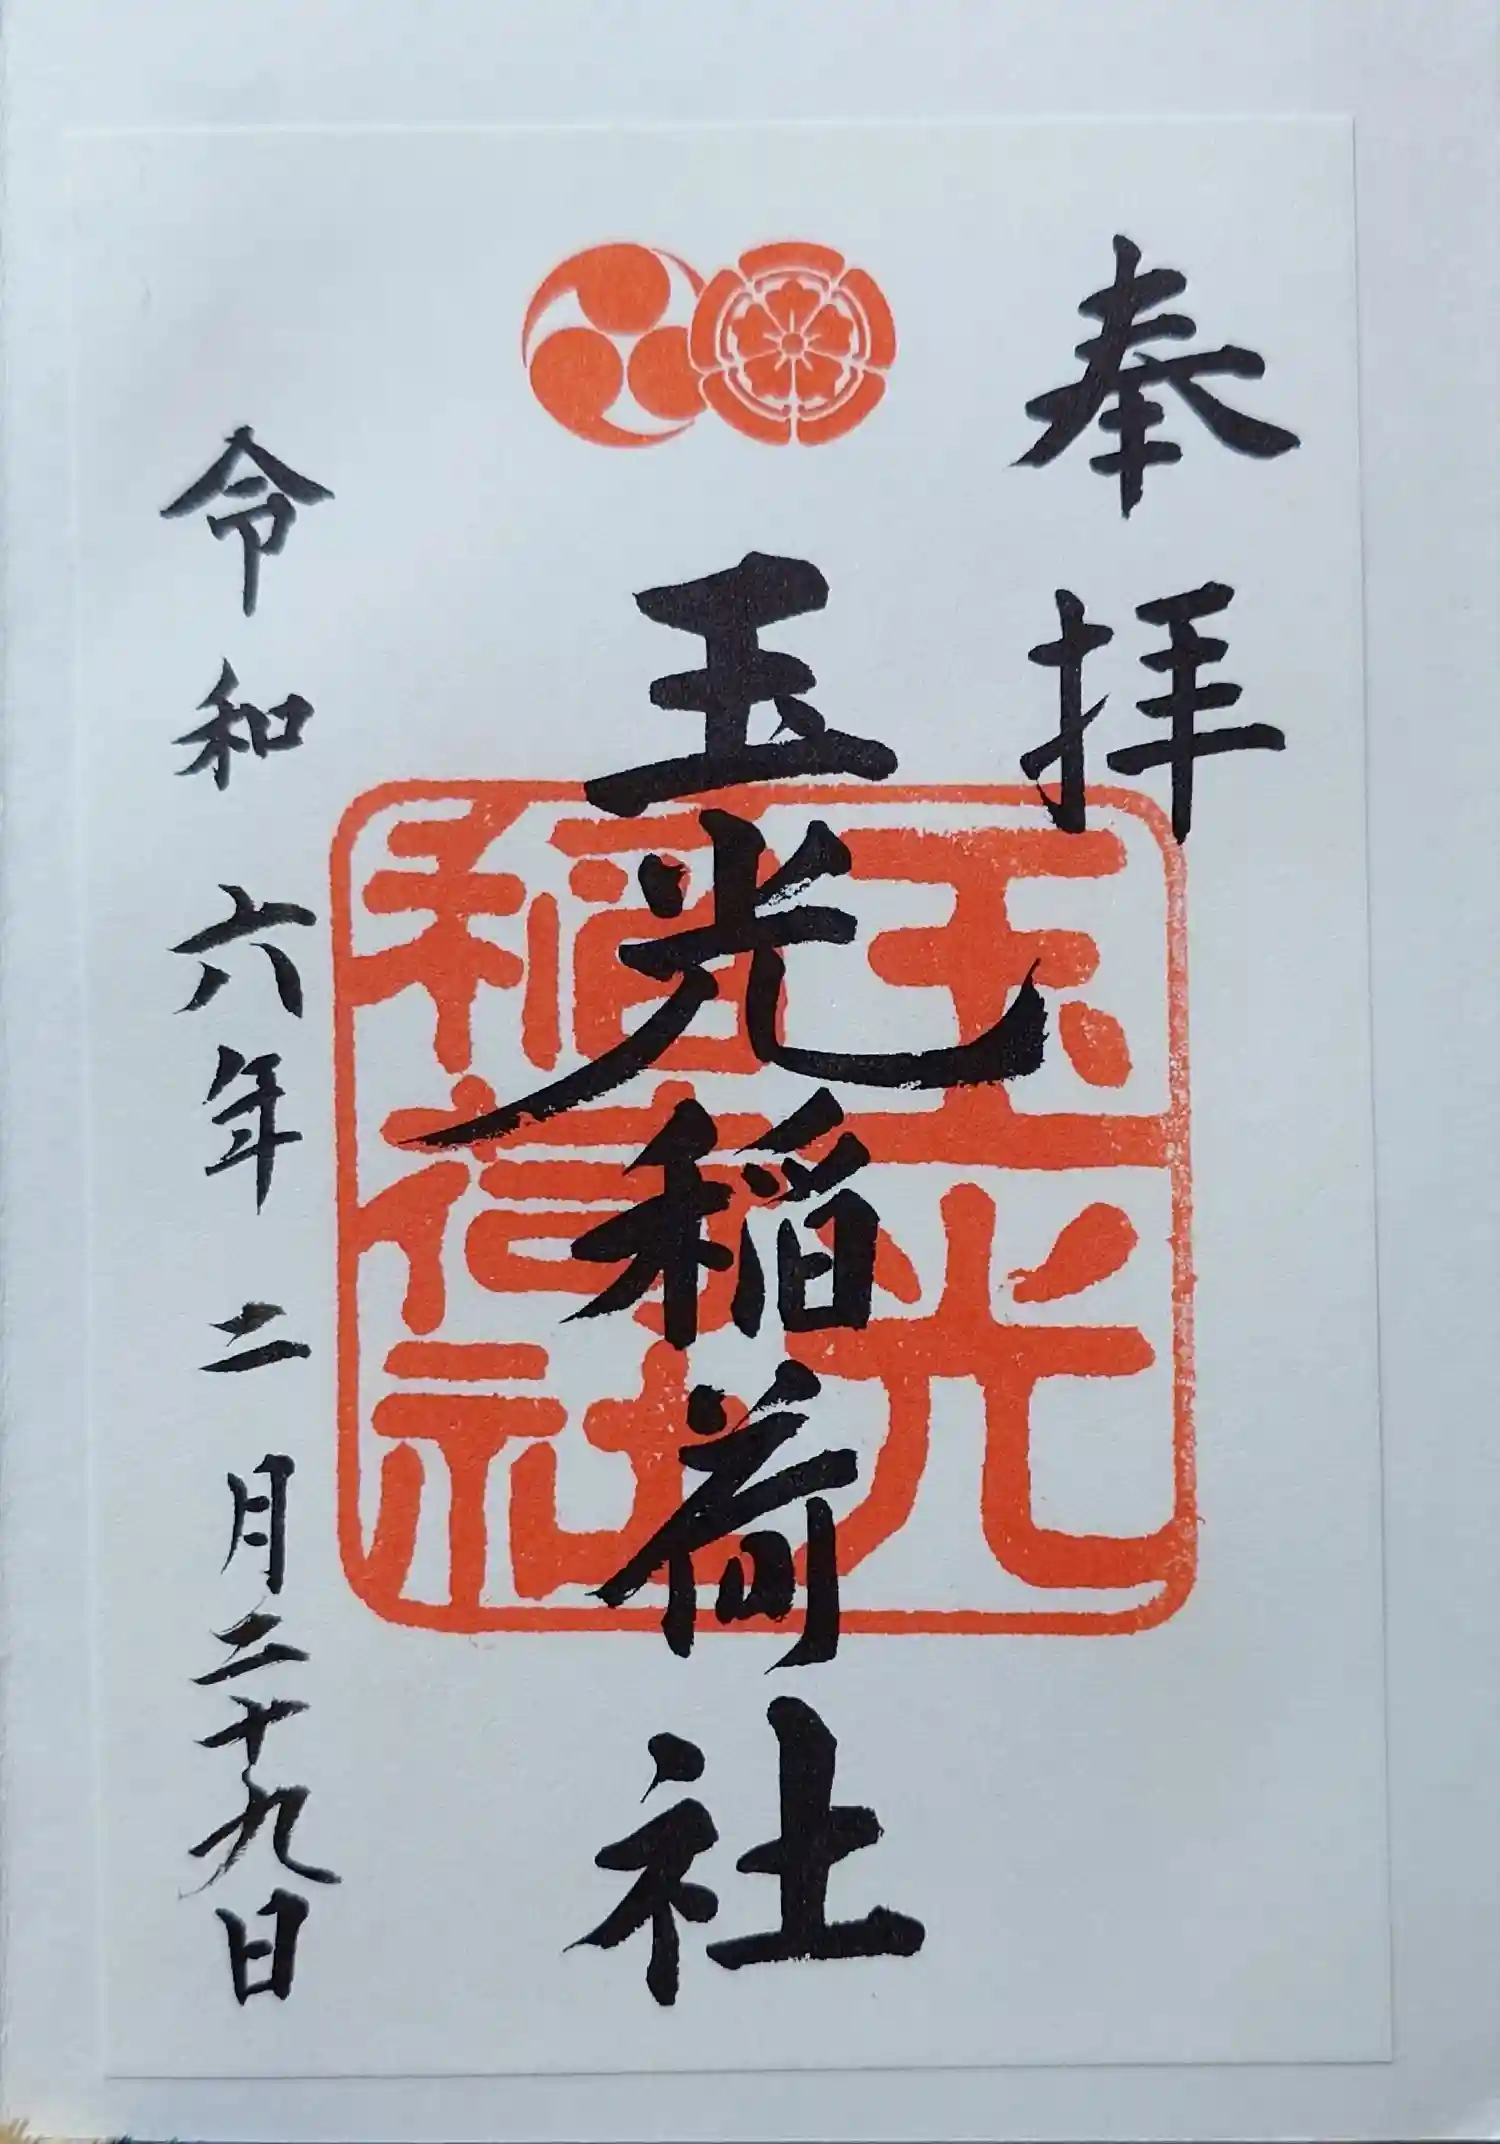 奉拝
玉光稲荷社
玉光
稲荷社
令和六年二月二十九日